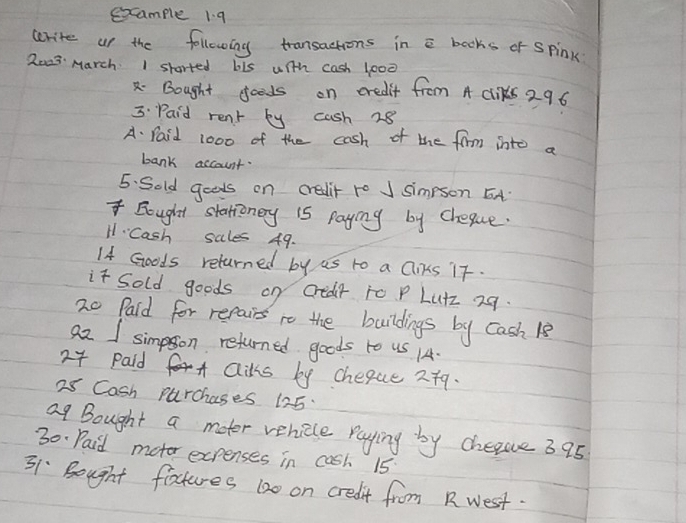 Example 1.9
Write up the following transactions in e books of S Pink
2003. March. 1 started b/s with cash 4000
2. Bought goods on credit from A Cliks 296
3. Paid rent by cash 28
4. Paid 1000 of the cash of the firm into a
bank account.
5. Sold goods on credit to J Simpson 54.
7 Bought stationery 15 paying by Cheque.
11. Cash sales 49.
14 Goods returned by us to a Cliks 17.
17 Sold goods on credit to P Lutz 29.
20 Paid for repairs to the buildings by Cash 18
22 J Simpson returned goods to us 14.
27 Paid A Cliks by cheque 279.
28 Cash purchases 125.
29 Bought a motor vehicle Paying by cheque 395
30. Paid motor expenses in cash 15.
31. Bought fixtures 120 on credit from R West.